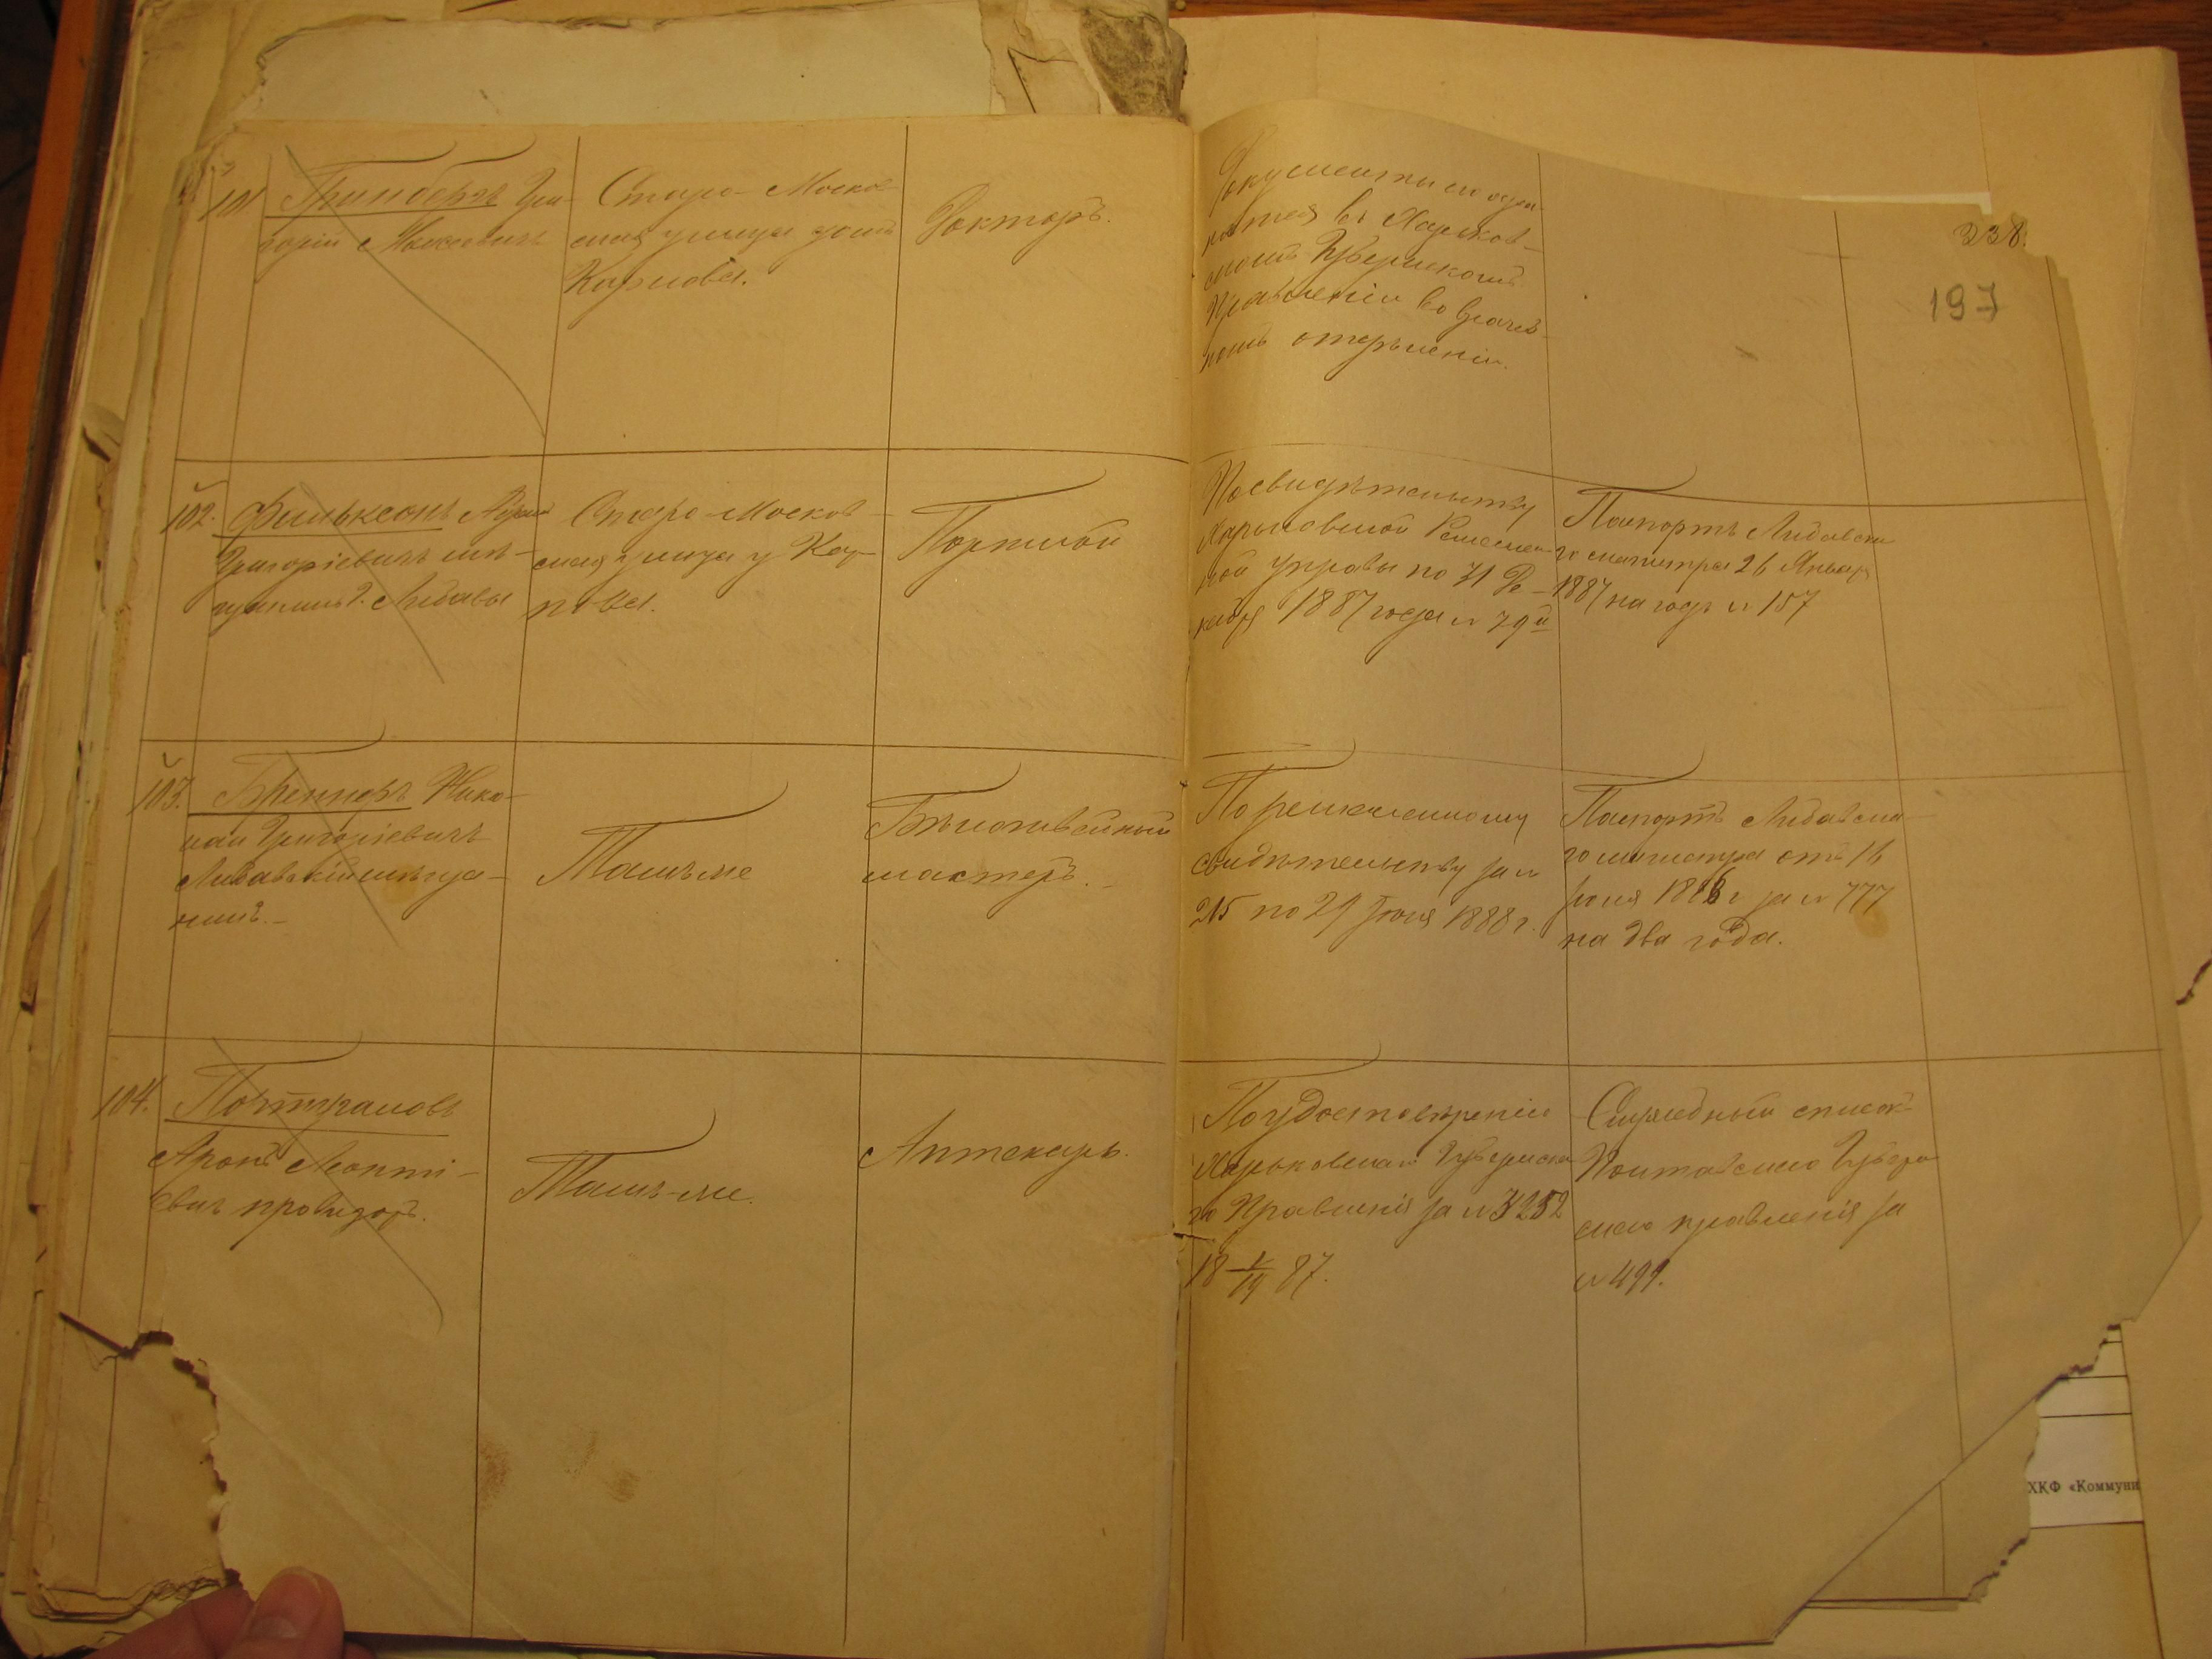 238.
197
101
Гринбергъ Гри-
горій Моисеевичъ
Старо-Москов
ская улица домъ
Карпова.
Докторъ.
Документы находя-
нятся въ Харьков-
скомъ Губернскомъ
Правленіи во врачеб-
номъ отдѣленіи.
102.
Фильксонъ
Григоріевичъ мѣ-
щанинъ г. Либавы
Старо-Москов-
ская улица у Кар-
пова.
Портной
По свидѣтельству
Харьковской Ремеслен-
ной управы по 31 Де-
кабря 1887 года №
Паспортъ Либавска
го магистра 26 Январ
1887 на годъ № 157
103.
Бреннеръ Нико-
лай Григоріевичъ
Либавскій мѣща-
нинъ.-
Тамъ же
Бѣлошвейный
мастеръ.
По ремесленному
свидѣтельству за №
215 по 21 Іюля 1888 г.
Паспортъ Либавска-
го магистра отъ 16
Іюля 1886 г за № 777
на два года.
104.
Портграловъ
Аронъ Леонті-
евичъ провизоръ.
Тамъ-же.
Аптекарь.
По удостовѣренію
Харьковскаго Губернска
го Правленія за № 3252
18 87.
Служебный списокъ
Полтавскаго Губерн
скаго правленія за
№ 499.
ХКФ «Коммуни